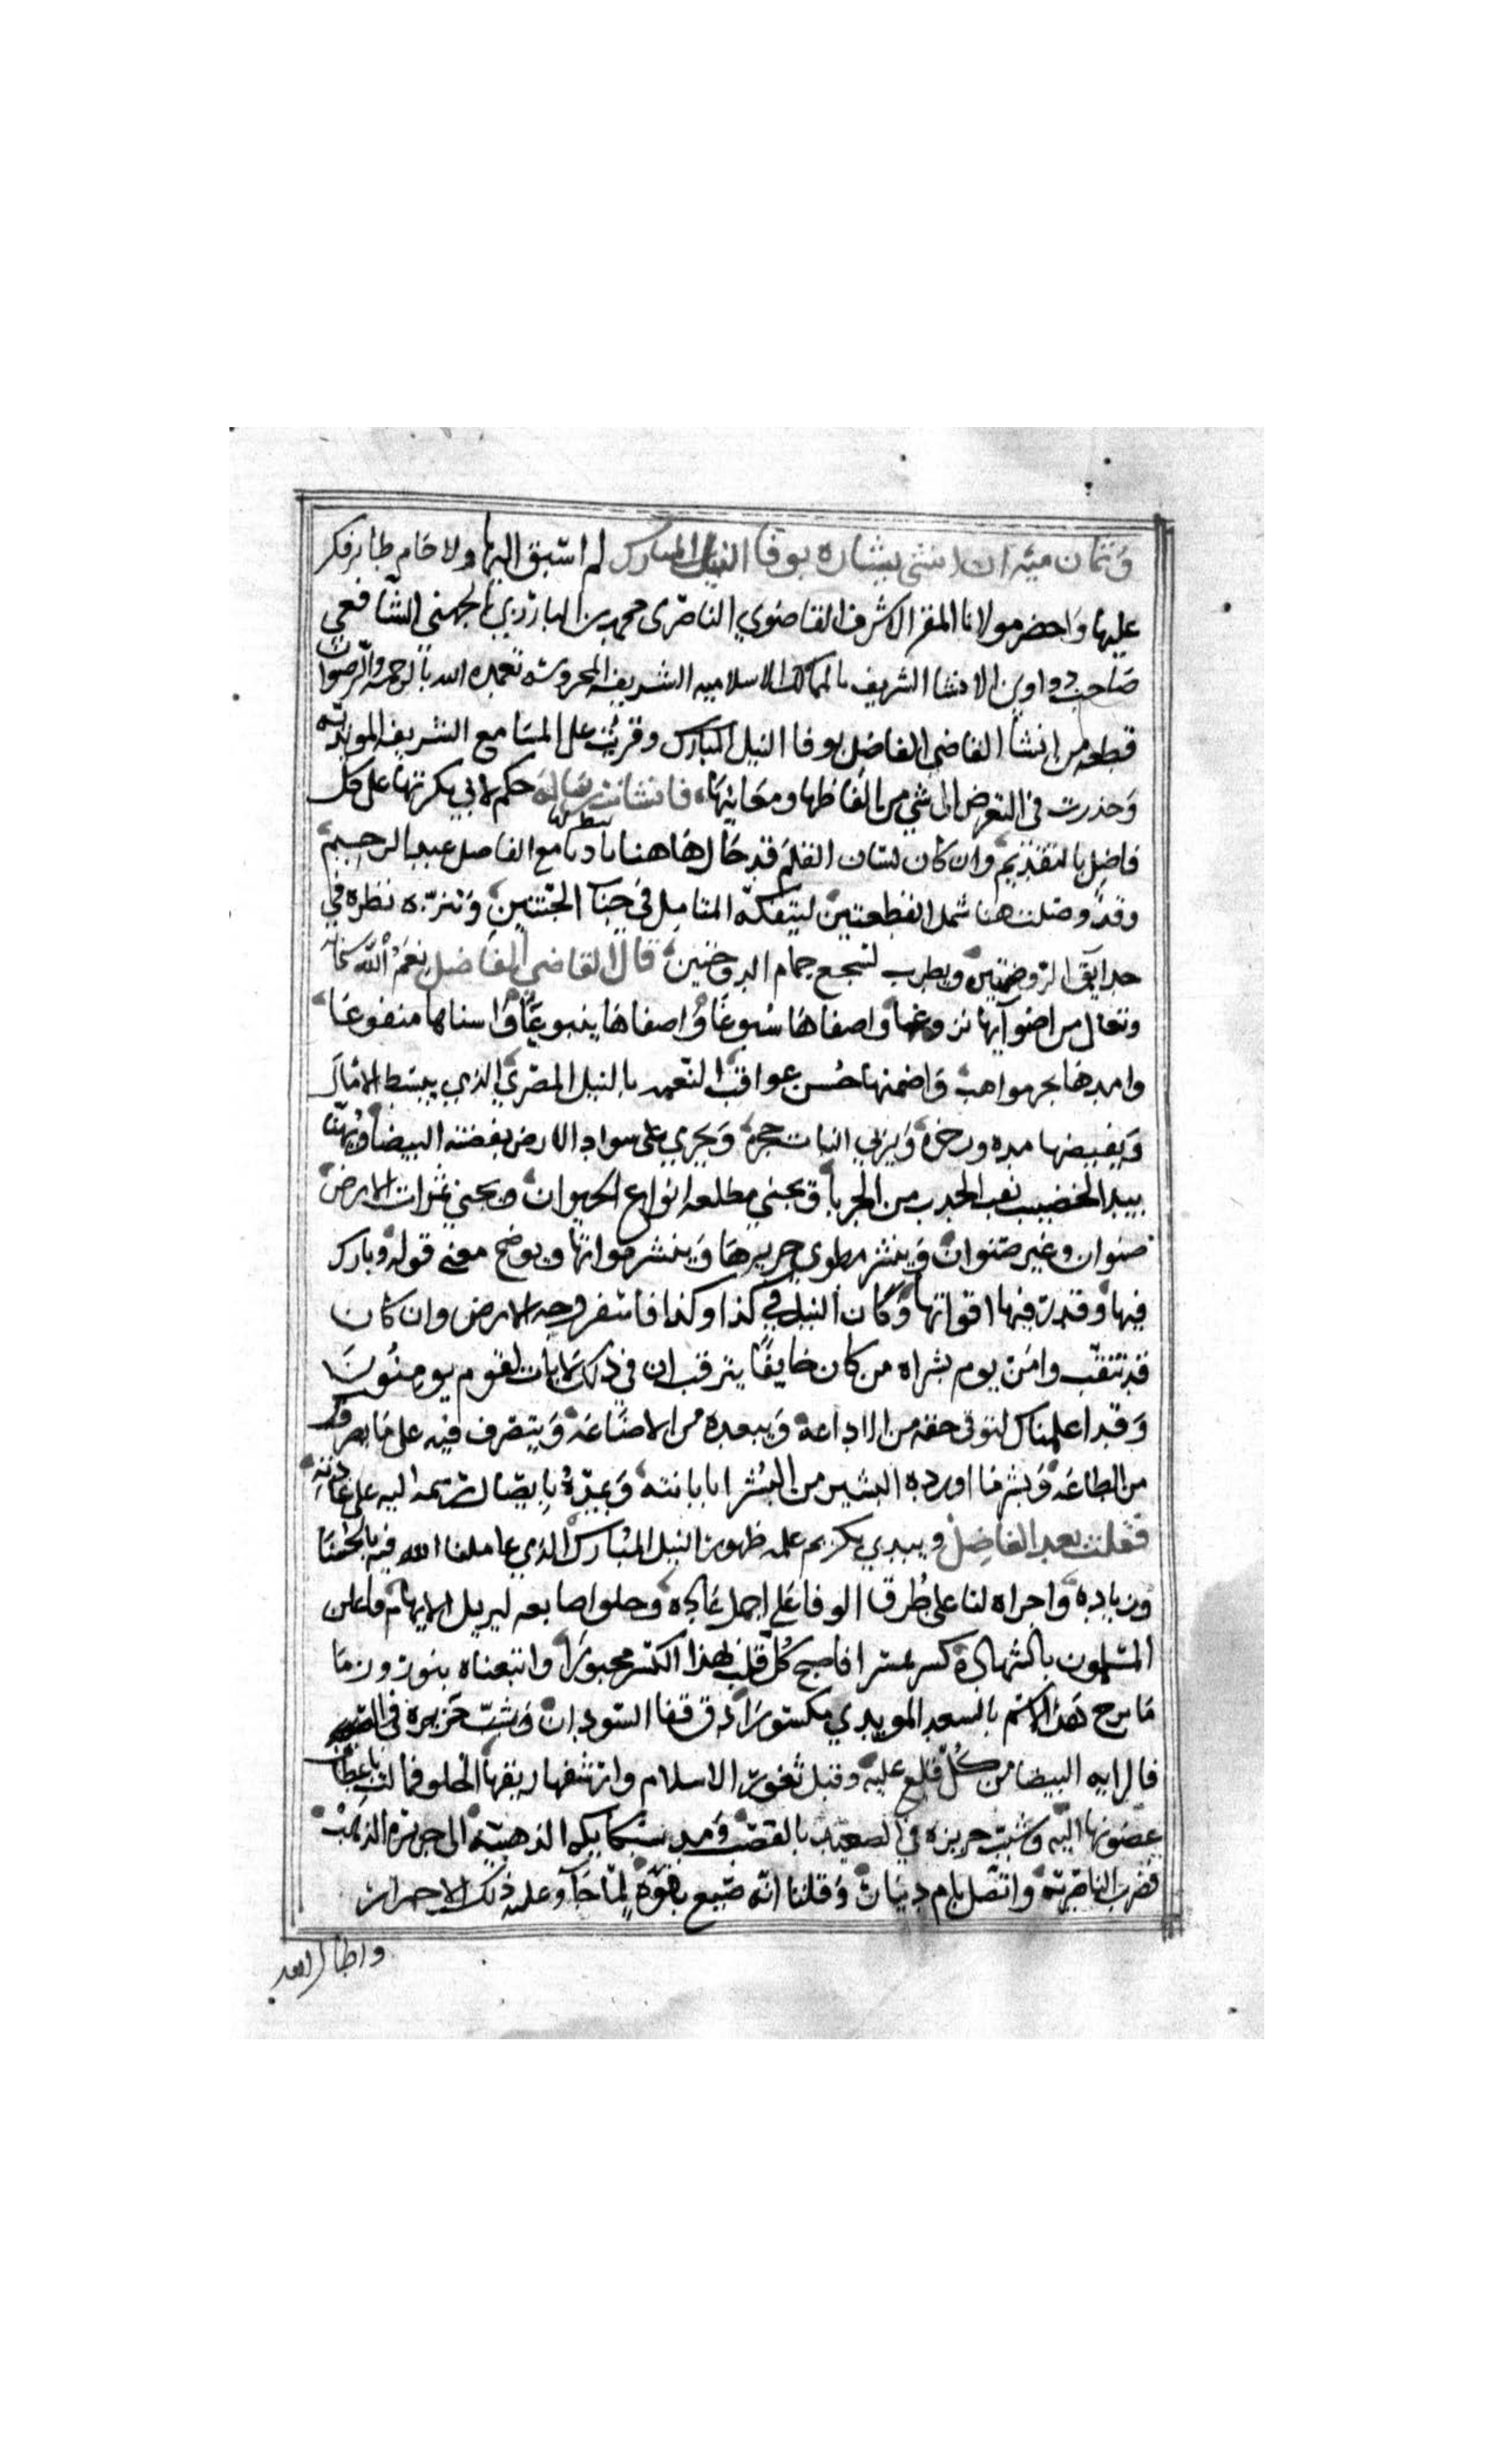 وثمان ميه ان انشى بشاره بوفا النيل المبارك لم اسبق اليها ولا حام طاير فكر
عليها واحضر مولانا المقر الاشرف القاضوي الناصرى محمد بن البارزي الجهني الشافعي
صاحب دواوين الانشا الشريف بالممالك الاسلاميه الشريفه المحروسه تغمده الله بالرحمه والرضوان
قطعه من انشا القاضي الفاضل بوفا النيل المبارك وقريت على المسامع الشريفه المويديه
وحذرت في التعرض الى شي من الفاظها ومعانيها، فانشات رساله حكم لابي بكرتها على كل
فاضل بالتقديم وان كان لسان القلم قد طال هاهنا تادبا مع الفاضل عبد الرحيم
وقد وصلت هنا شمل القطعتين ليتفكه المتامل في جنا الجنتين وتنزه نظره في
حدايق الروضتين ويطرب لسجع حمام الدوحتين قال القاضي الفاضل نعم الله سبحانه
وتعالى من اضوآيها بزوغها واصفاها سبوغا واصفاها ينبوعا واسناها منفوعا
وامدها بحر مواهب واضمنها حسن عواقب النعمه بالنيل المصري الذي يبسط الامال
ويقبضها مده وجزره ويربي النبات حجره ويجري على سواد الارض بفضته البيضا
صنوان وغير صنوان وينشر مطوي حريرها وينشر مواتها ويوضح معنى قوله وبارك
فيها وقدر فيها اقواتها وكان النيل في كذا وكذا فاسفر وجه الارض وان كان
قد تنقب وامن يوم بشراه من كان خايفا يترقب ان في ذلك لايات لقوم يومنون
وقد اعلمناك لتوفي حقه من الاذاعه ويبعده من الاضاعه ويتصرف فيه على ما يصرفه
من الطاعه وبشر ما اورده البشير من البشرا بابانته وعده بايصال رسمه اليه على عادته
فقلت بعد الفاضل ويبدي لكريم علمه ظهور النيل المبارك الذي عاملنا الله فيه بالحسنا
وزياده واجراه لنا على طرق الوفا على اجمل عاده وخلق اصابعه ليزيل الايهام فاعلن
المسلمون بالشهاده كسر بمسرا فاصبح كل قلب بهذا الكسر مجبورا واتبعناه بنوروز وما
ما برح هذا الاسم بالسعد المويدي مكسورا دق قفا السودان
فالرايه البيضا من كل قلع عليه وقبل ثغور الاسلام وارتشفها ريقها الحلو فمالت باعطاف
غصونها اليه وشبب خريره في الصعيد بالقصب ومد سبايكه الذهبيه الى جزيره الذهب
فضرب الناصريه واتصل بام دينار وقلنا انه صبغ بقوه لما جآ وعليه ذلك الاحمرار